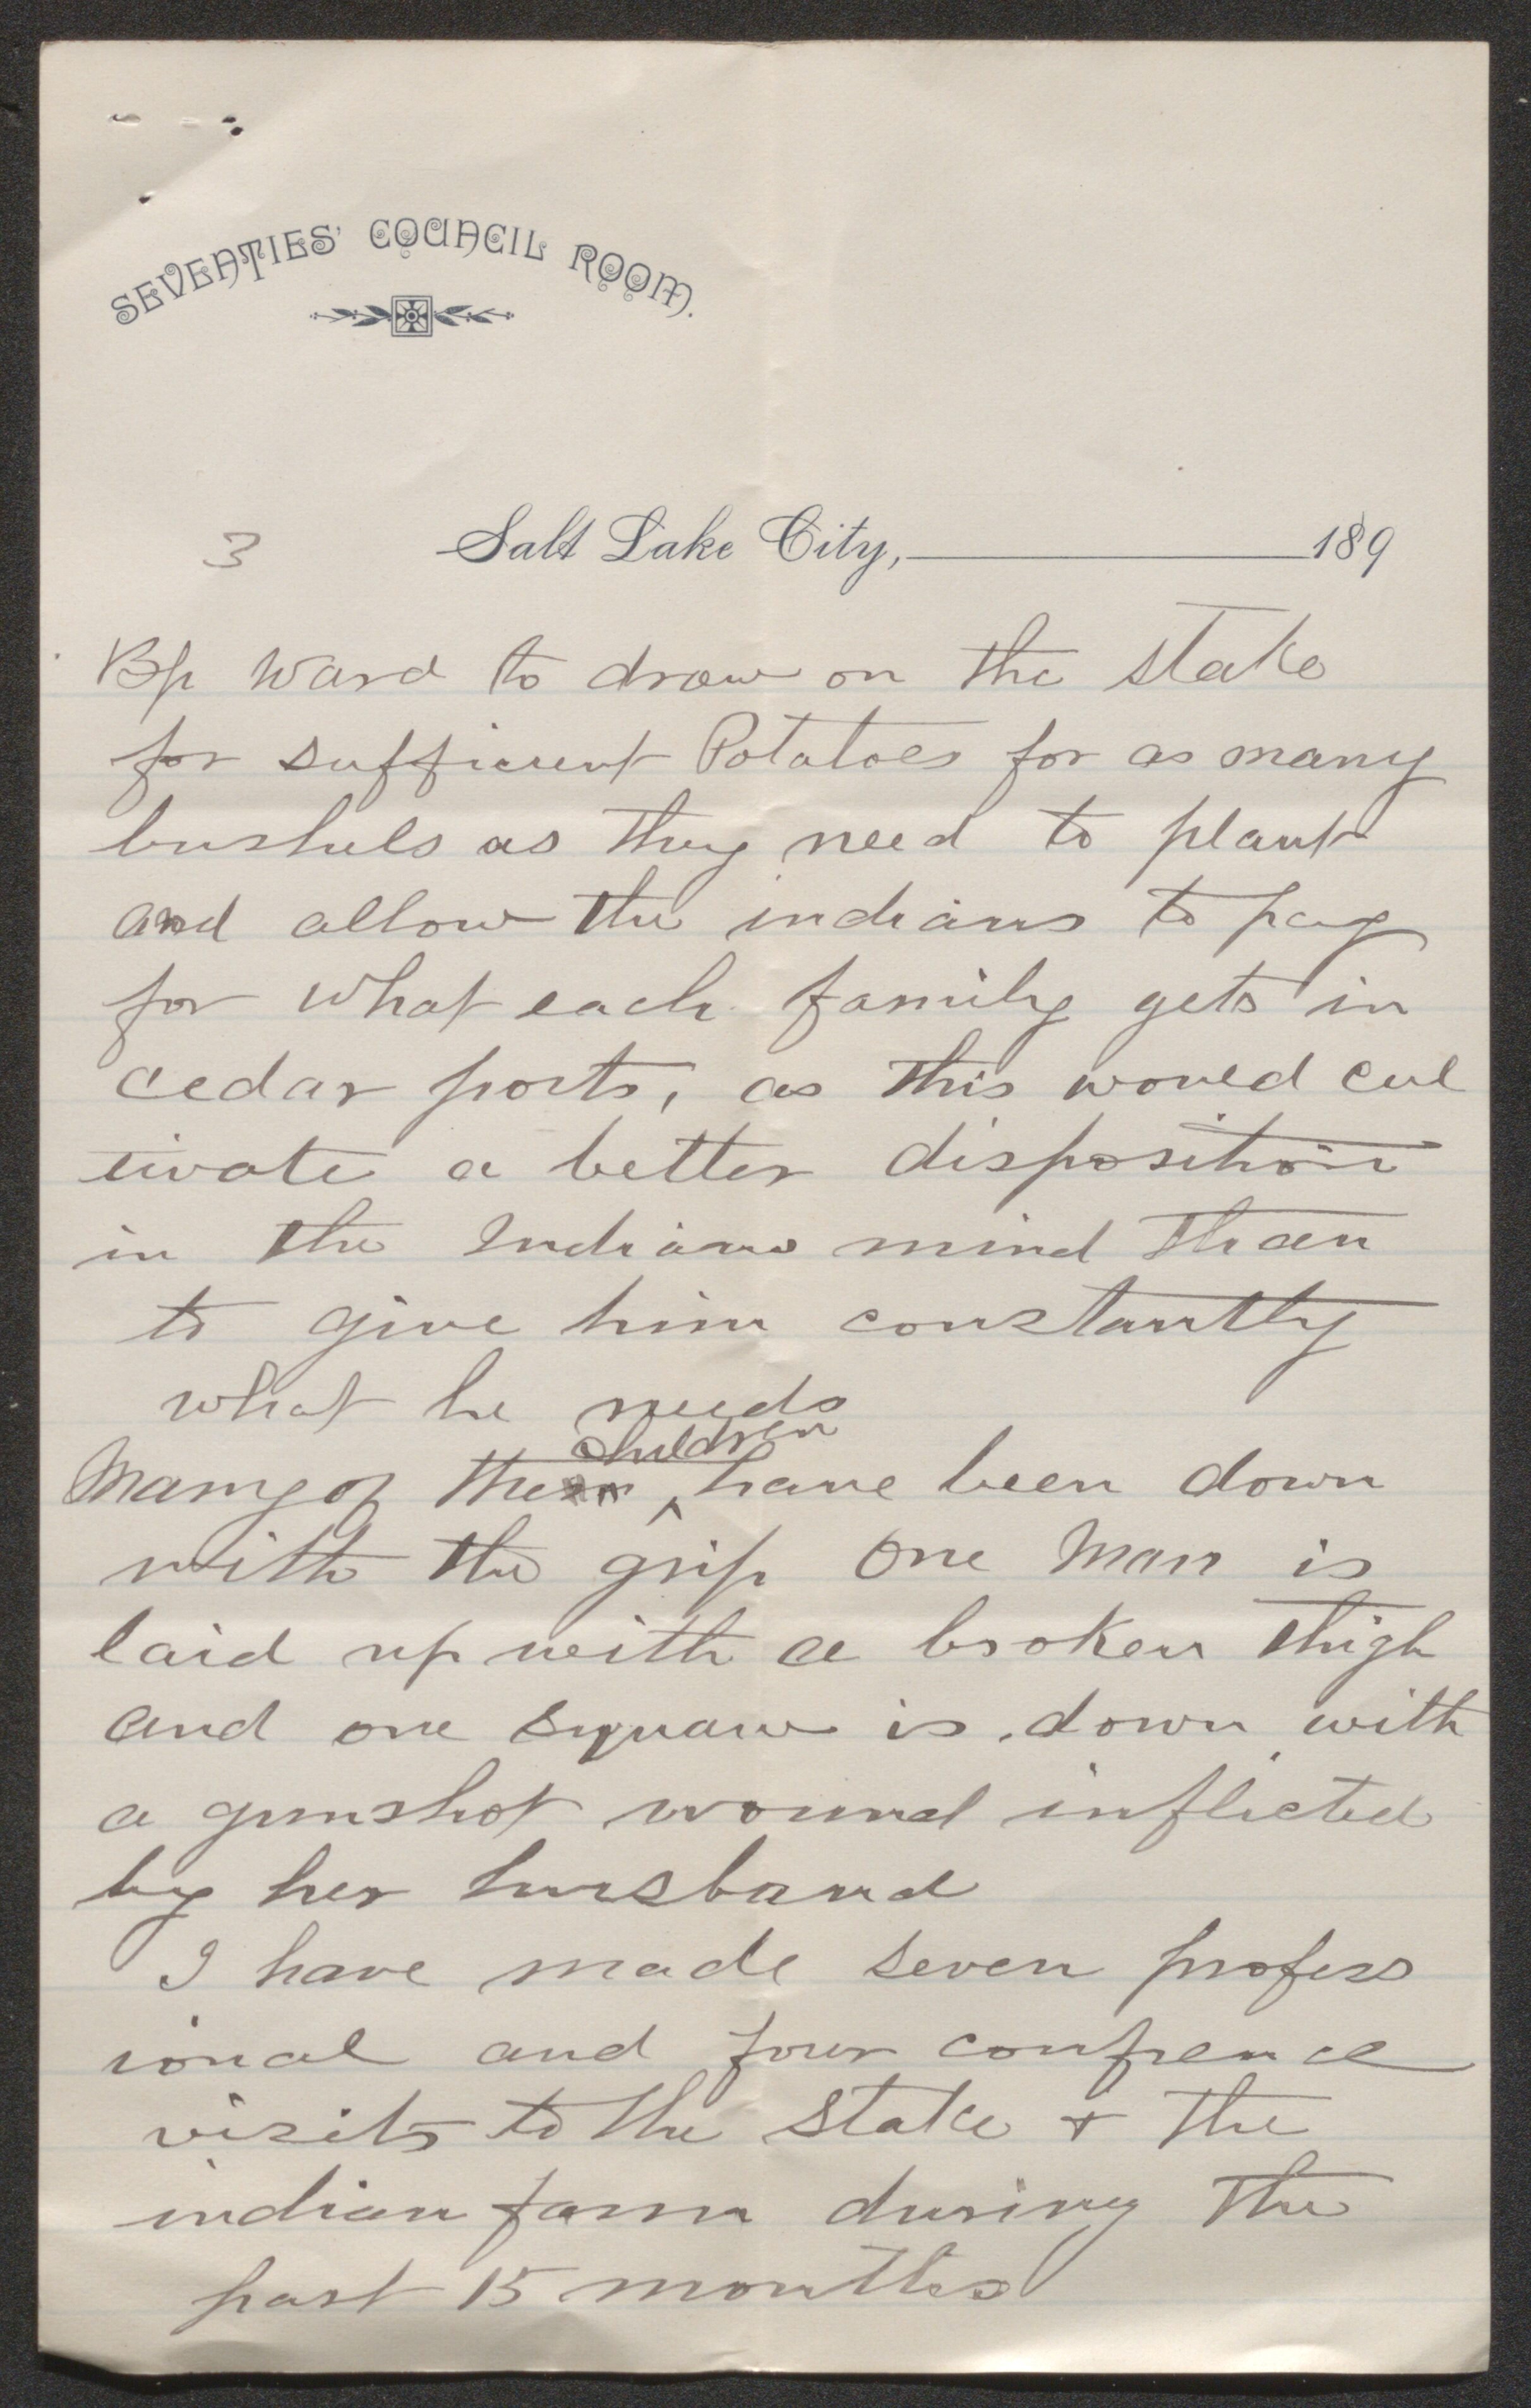 SEVENTIES' COUNCIL ROOM.
3 Salt Lake City, 189
Bp Ward to draw on the stake
for sufficient Potatoes for as many
bushels as they need to plant
and allow the indians to pay
for what each family gets in
cedar posts, as this would cul
tivate a better disposition
in the Indians mind than
to give him constantly
what he needs
children
Many of their ^ have been down
with the grip One Man is
laid up with a broken thigh
and one squaw is down with
a gunshot wound inflicted
by her husband
I have made seven profess
ional and four confrence
visits to the stake & the
indian farm during the
past 15 months